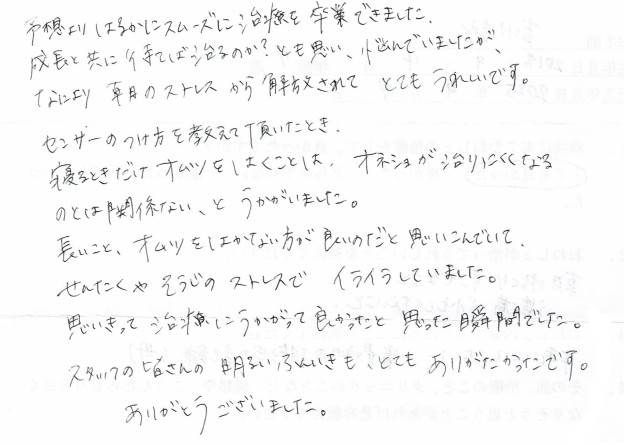 予想よりはるかにスムーズに治療を卒業できました。
成長と共に待てば治るのか？とも思い、悩んでいましたが、
なにより毎日のストレスから解放されてとてもうれしいです。
センサーのつけ方を教えて頂いたとき、
寝るときだけオムツをはくことは、オネショが治りにくくなる
のとは関係ない、とうかがいました。
長いこと、オムツをはかない方が良いのだと思いこんでいて、
せんたくやそうじのストレスでイライラしていました。
思いきって治療にうかがって良かったと思った瞬間でした。
スタッフの皆さんの明るいふんいきも、とてもありがたかったです。
ありがとうございました。